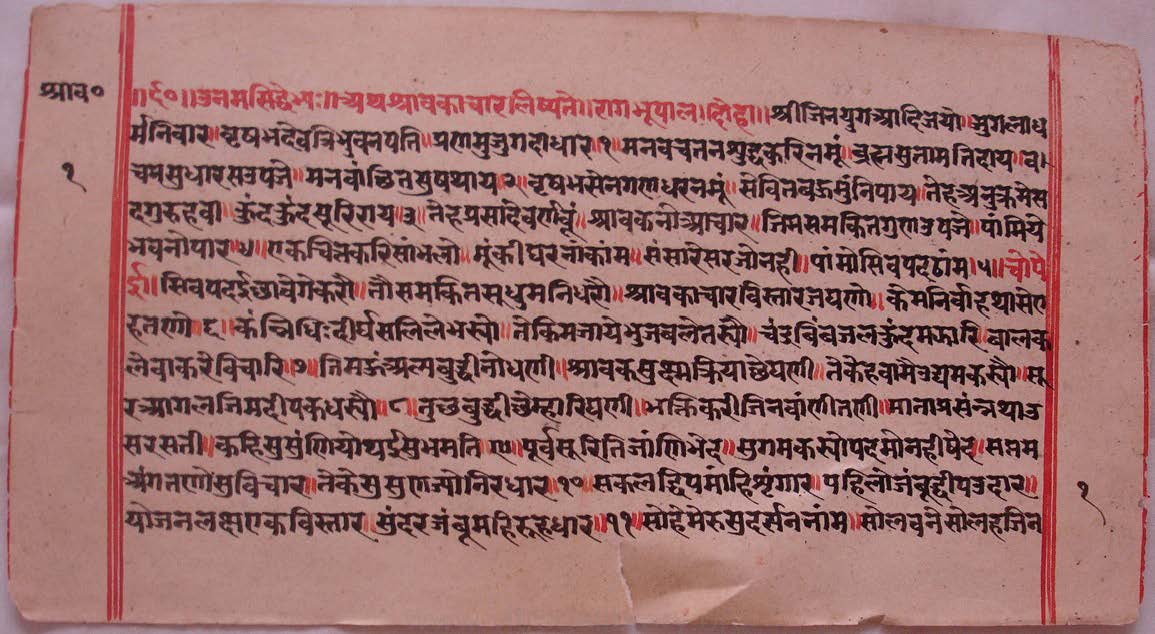 श्राव०
॥र्द०॥ उनमसिद्धेभ्यः॥ अथ श्रावकाचार लिष्यते॥ राग भूपाल॥ दोहा॥ श्रीजिनयुग आदि जयो॥ जुगलाध
र्मनिवार॥ वृषभदेव त्रिभुवनपति॥ प्रणमु जुगदाधार १ मनवचतनशुद्धकरिनमूं॥ ब्रह्मसुनामनिदाय॥ वा
चमसुधारसउपजे॥ मनवांछितसुषथाय २ वृषभसेनगणधरनमूं॥ सेवितबहुमुंनिपाय॥ तेहअनुक्रमेस
दगुरुहवा॥ कुंदकुंदसूरिराय ३ तेहप्रसादेवर्णवूं॥ श्रावकनोआचार॥ जिमसमकितगुणउपजे॥ पांमिये
भवनोपार ४ एकचित्तकरिसांभलो॥ मूंकीघरनांकांम॥ संसारेसरजोनही॥ पांमोसिवपदठांम ५॥ चौपै
ई॥ सिवपदईछावेगेकरौ॥ तौसमकितसुधुमनिधरौ॥ श्रावकाचारविस्तारजघणो॥ केमनिर्वाहथासेए
हतणो ६
लेवाकरेविचारि ७ तिमऊंअल्पबुद्धीनोधणी॥ श्रावकसुक्ष्मक्रियाछेघणी॥ तेकेहेवामैउद्यमकस्यौ॥ सू
रआगलजिमदीपकधस्यौ ८ तुछबुद्धीछेम्हारिघणी॥ भक्तिकरीजिनवांणीतणी॥ माताप्रसंन्नथाउ
सरसती॥ कहिसुसुंणियोथईसुभमति ९ पूर्वसूरितिजांणिभेद॥ सुगमकस्योपदमोनहीषेद॥ सप्तम
अंगतणोसुविचार॥ तेकेसुसुणज्योनिरधार १० सकलद्विपमांहिशृंगार॥ पहिलोजंबूद्वीपउदार॥
योजनलक्षएकविस्तार॥ सुंदरजंबूमहिरुहधार॥ ११ सोहेमेरुसुदर्सननांम॥ सोलवनेसोलहजिन
१
१